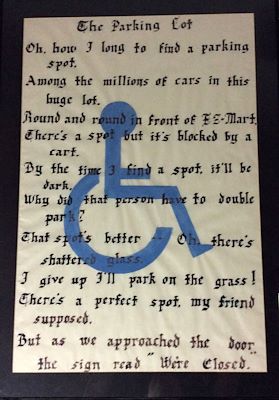 The Parking Lot
Oh, how I long to find a parking
spot.
Among the millions of cars in this
huge lot.
Round and round in front of EZ-Mart.
There's a spot but it's blocked by a
cart.
By the time I find a spot, it'll be
dark.
Why did that person have to double
park?
That spot's better -- Oh, there's
shattered glass.
I give up I'll park on the grass!
There's a perfect spot, my friend
supposed.
But as we approached the door,
the sign read "We're Closed."